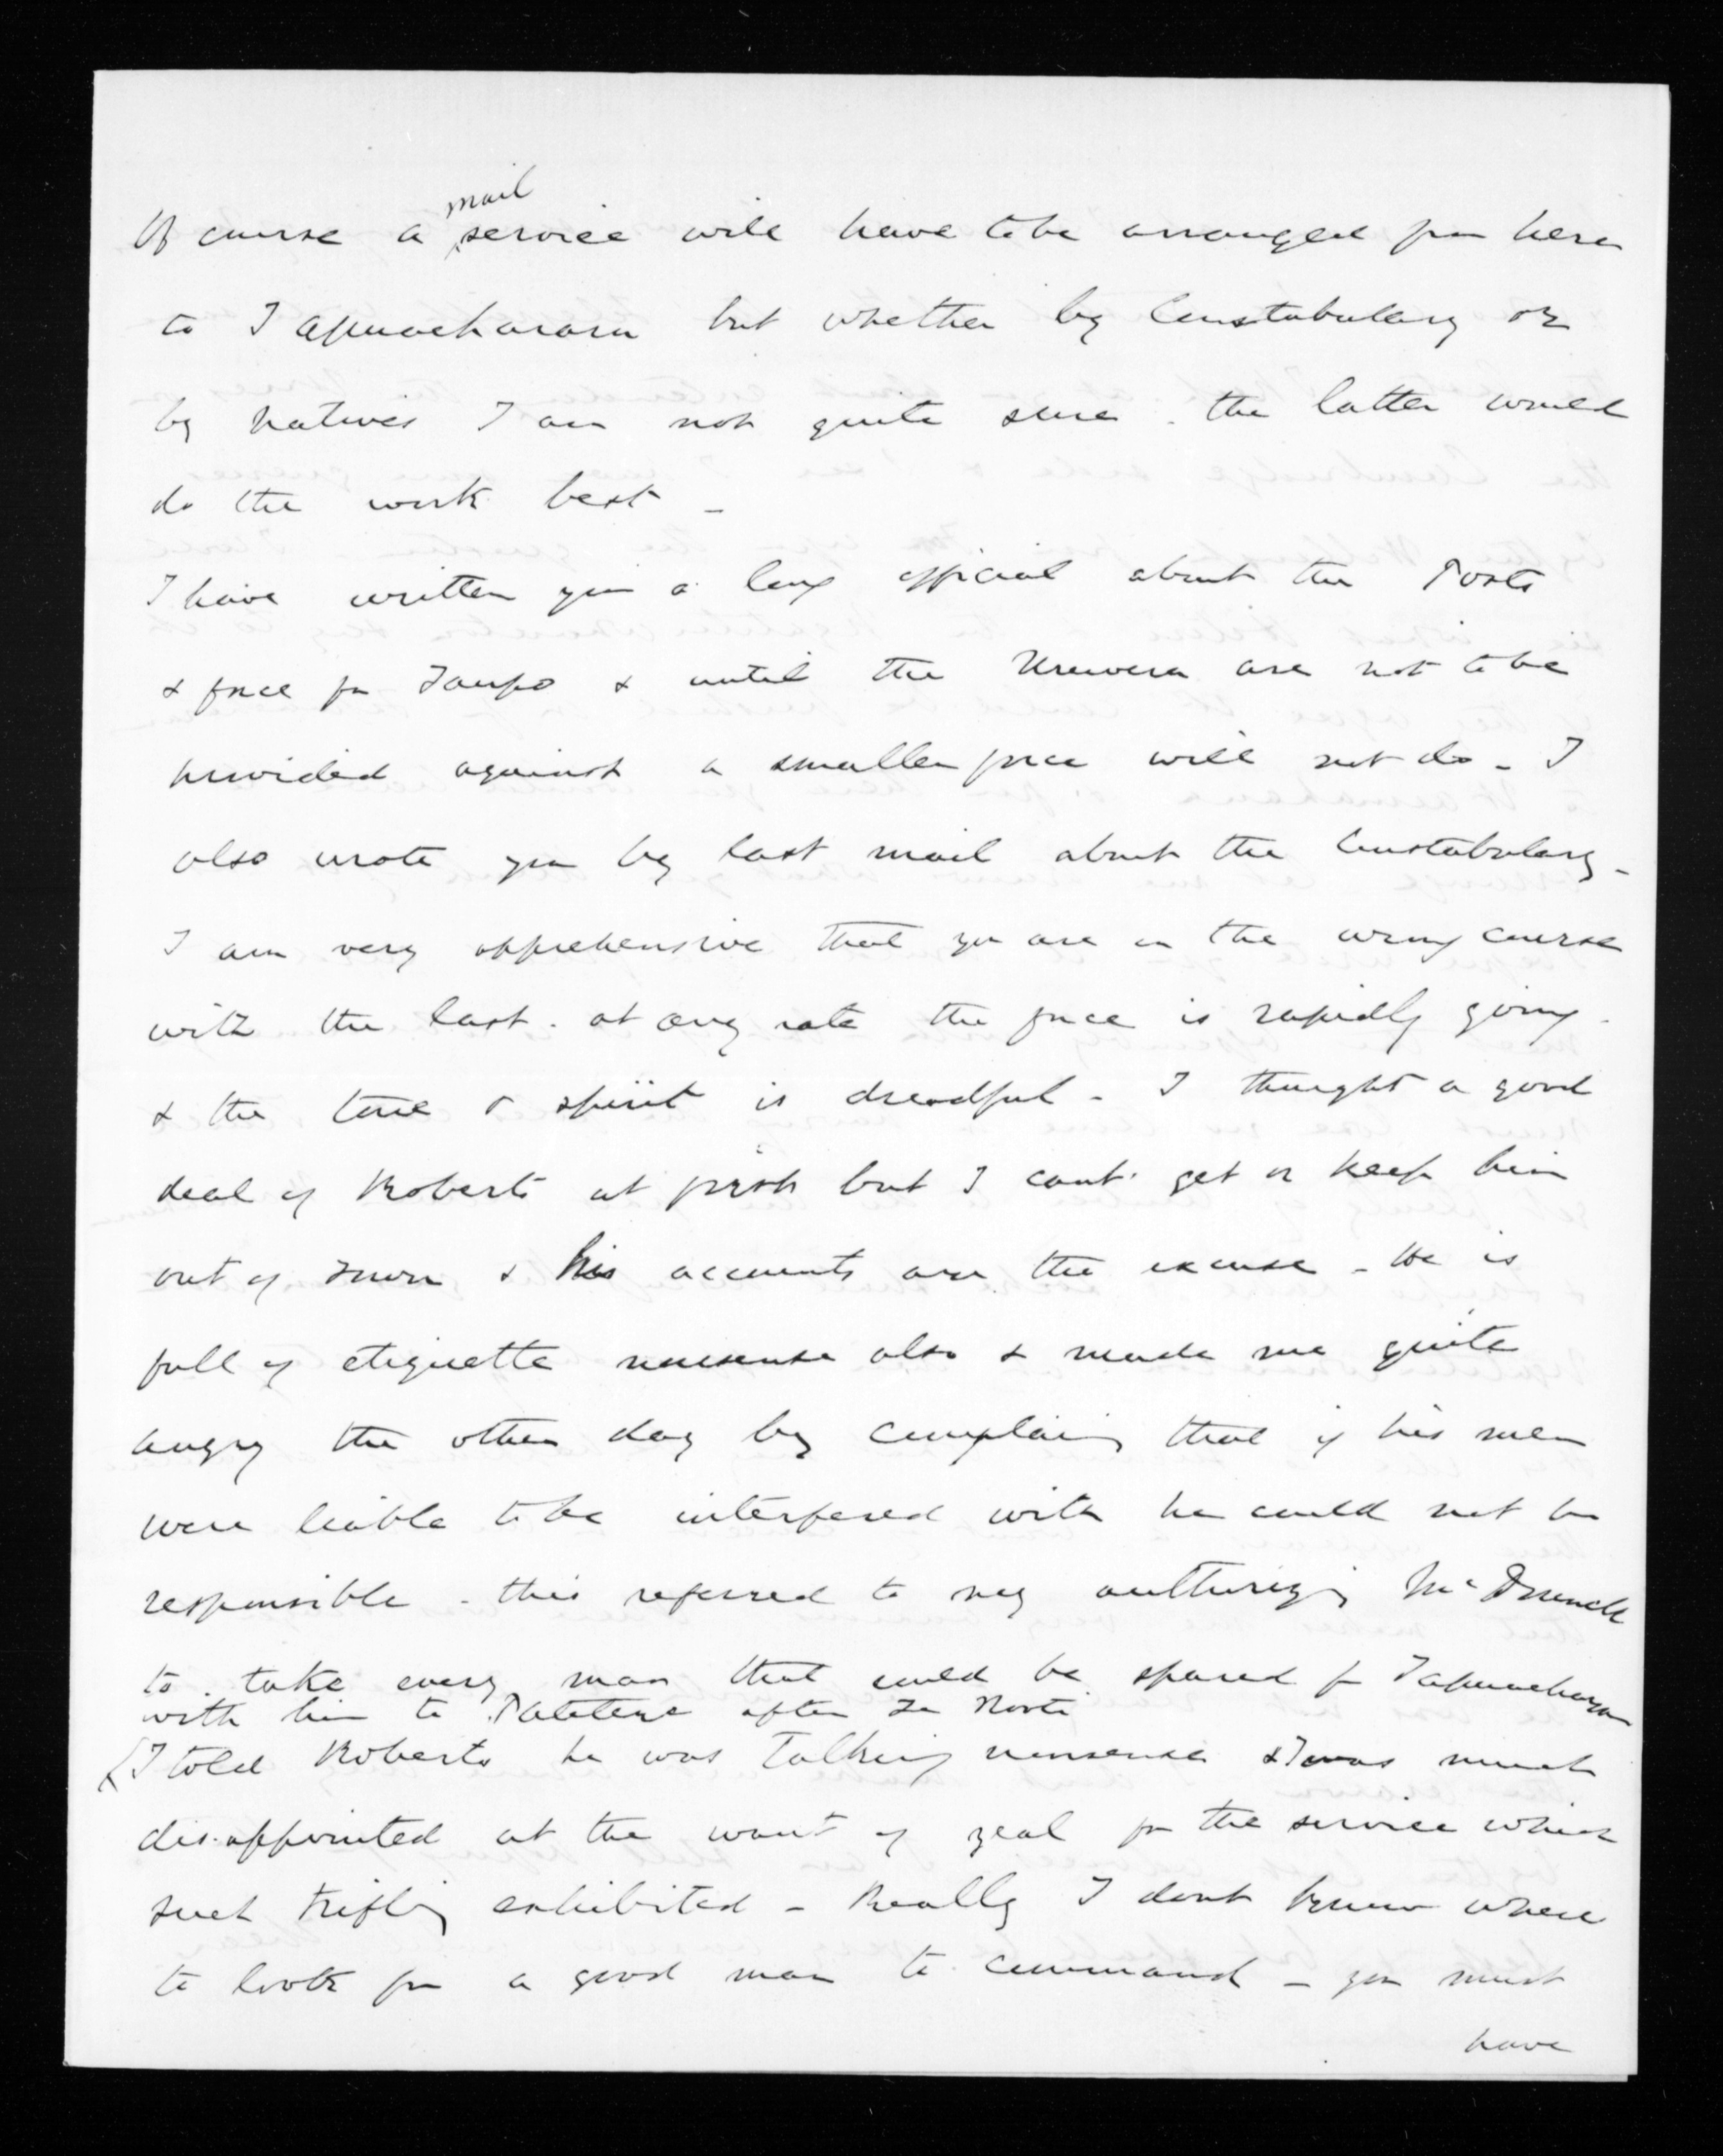 Of course a mail service will have to be arranged from here
to Tapuaeharara but whether by Constabulary or
by Natives I am not quite sure. the latter would
do the work best _
I have written you a long official about the Posts
& force for Taupo & until the Urewera are not to be
provided against a smaller force will not do _ I
also wrote you by last mail about the Constabulary _
I am very apprehensive that you are in the wrong course
with the last. at any rate the force is rapidly going.
& the tone & spirit is dreadful _ I thought a good
deal of Roberts at first but I cant get or keep him
out of town & his accounts are the excuse _ He is
full of etiquette nonsense also & made me quite
angry the other day by complaining that if his men
were liable to be interfered with he could not be
responsible _ this referred to my authorizing McDonnell
to take every man that could be spared from Tapuaeharara
with him to Patetere after Te Kooti
I told Roberts he was talking nonsense & I was much
disappointed at the want of zeal for the service which
such trifling exhibited _ Really I dont know where
to look for a good man to command _ you must
have